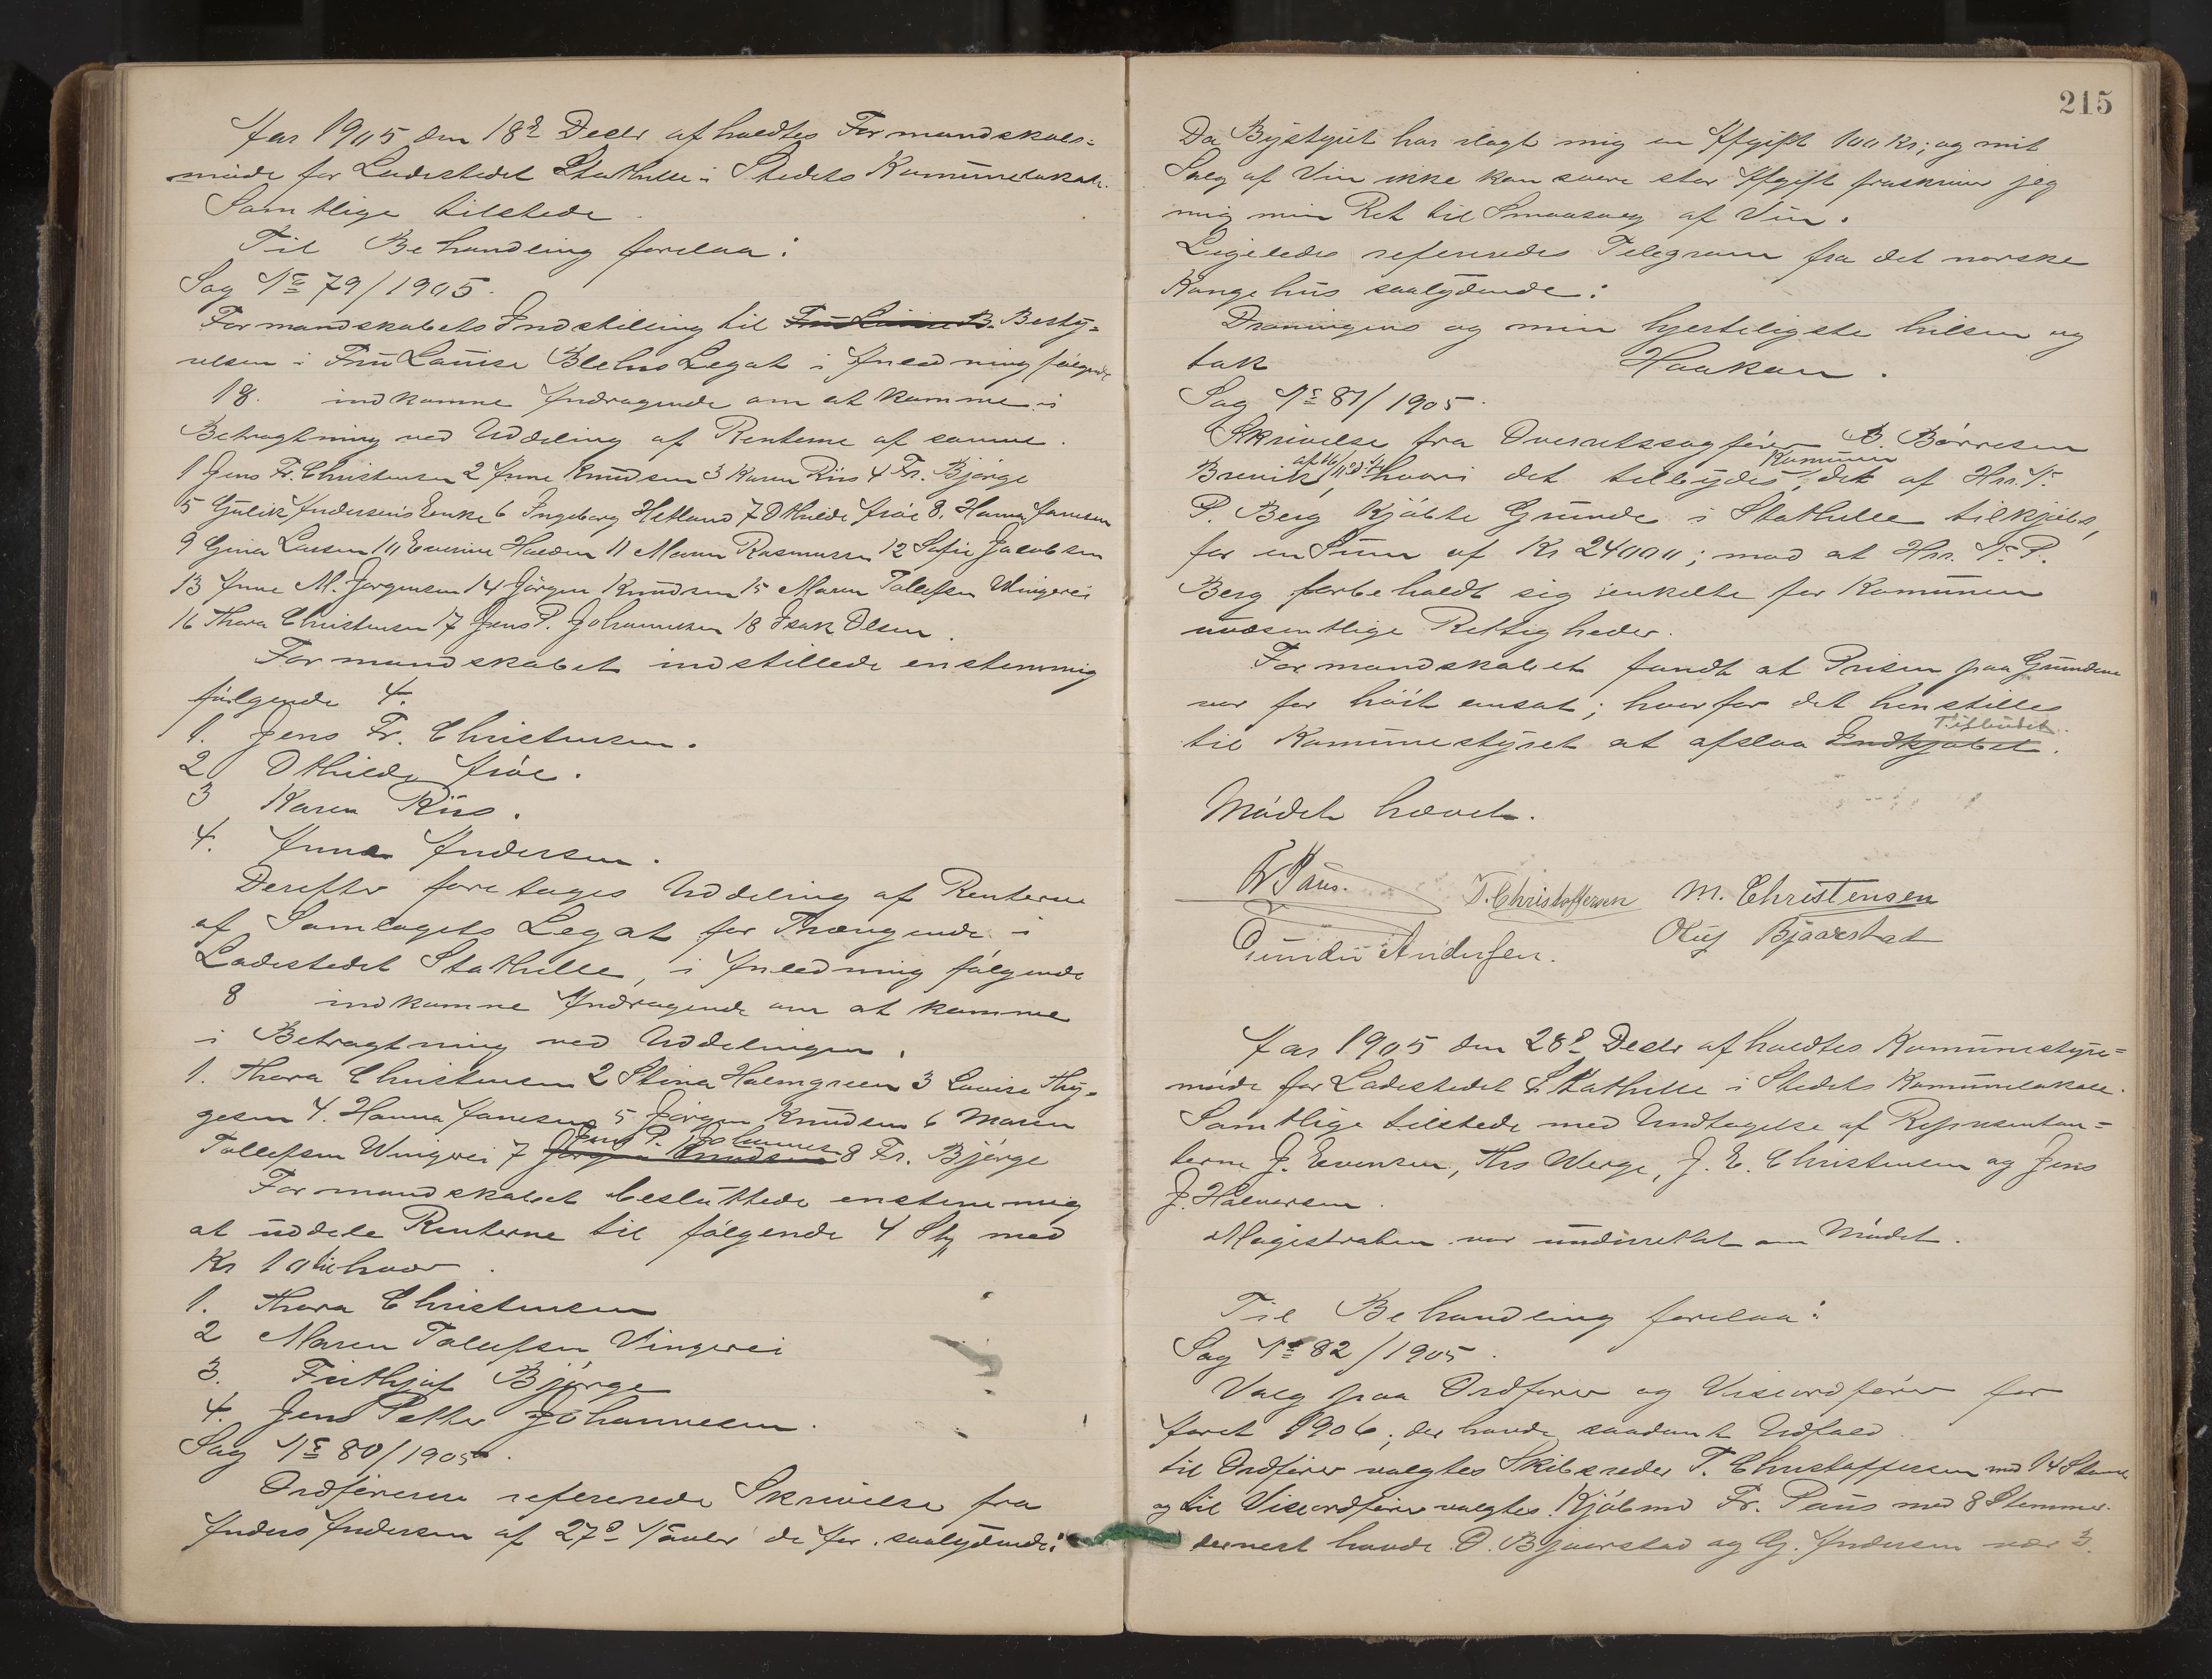 Aar 1905 den 18de Decbr afholdtes Formandskabs=
møde for Ladestedet Stathelle i Stedets Kommunelokale.
Samtlige tilstede.
Til Behandling forelaa:
Sag No 79/1905.
Formandskabets Indstilling til Fru Louise B. Besty=
relsen i Fru Louise Blehrs Legat i Anledning følgende
18. indkomne Andragende om at komme i
Betragtning ved Uddeling af Renterne af samme.
1 Jens Fr. Christensen 2 Anne Knudsen 3 Karen Riis 4 Fr. Bjørge
5 Gulik Andersens Enke 6 Ingeborg Hetland 7 Othilde Aröe 8. Hanna Jansen
9 Gina Larsen 10 Everine Halden 11 Maren Rasmussen 12 Sofie Jacobsen
13 Anne M. Jørgensen 14 Jørgen Knudsen 15 Maren Tollefsen Wingerei
16 Thora Christensen 17 Jens P. Johannesen 18 Isak Olsen.
Formandskabet indstillede enstemmig
følgende 4.
1. Jens Fr. Christensen.
2 Othilde Aröe.
3 Karen Riis.
4. Anna Andersen.
Derefter foretoges Uddeling af Renterne
af Samlagets Legat for Trængende i
Ladestedet Stathelle, i Anledning følgende
8 indkomne Andragende om at komme
i Betragtning ved Uddelingen.
1. Thora Christensen 2 Stina Holmgreen 3 Lovise Thy=
gesen 4. Hanna Jansen 5 Jørgen Knudsen 6 Maren
Tollefsen Wingerei 7 Jørgen Knudsen Jens P. Johannes 8 Fr. Bjørge
Formandskabet besluttede enstemmig
at uddele Renterne til følgende 4 Stk med
Kr 10 til hver.
1. Thora Christensen
2 Maren Tollefsen Vingerei
3. Frithjof Bjørge
4. Jens Petter Johannesen.
Sag No 80/1905.
Ordføreren refererede Skrivelse fra
Anders Andersen af 27de Novbr de Ar. saalydende:
215
Da Bystyret har ilagt mig en Afgift 100 Kr; og mit
Salg af Vin ikke kan svare stor Afgift fraskriver jeg
mig min Ret til Smaasalg af Vin.
Ligeledes refereredes Telegram fra det norske
Kongehus saalydende:
Dronningens og min hjerteligste hilsen og
tak Haakon.
Sag No 81/1905.
Skrivelse fra Overretssagfører B. Børresen
Brevik, hvori det tilbydes Kommunen, det af Hrr. N.
P. Berg kjøbte Grunde i Stathelle tilkjøbs,
for en Sum af Kr 24000; mod at Hrr. N. P.
Berg forbeholdt sig enkelte for Kommunen
uvæsentlige Rettigheder.
Formandskabet fandt at Prisen paa Grundene
var for høit ansat; hvorfor det henstilles
til Kommunestyret at afslaa Indkjøbet Tilbudet.
Mødet hævet.
Fr Paus. T. Christoffersen M. Christensen
Gunder Andersen. Oluf Bjaarstad
Aar 1905 den 28de Decbr afholdtes Kommunestyre=
møde for Ladestedet Stathelle i Stedets Kommunelokale.
Samtlige tilstede med Undtagelse af Repræsentan=
terne J. Evensen, Ths Werge, J. E. Christensen og Jens
J. Halvorsen.
Magistraten var underrettet om Mødet.
Til Behandling forelaa:
Sag No 82/1905.
Valg paa Ordfører og Viseordfører for
Aaret 1906, der havde saadant Udfald.
til Ordfører valgtes Skibsreder T. Christoffersen med 14 Stemmer
og til Viseordfører valgtes Kjøbmd Fr. Paus med 8 Stemmer.
dernest havde O. Bjaarstad og G. Andersen hver 3.